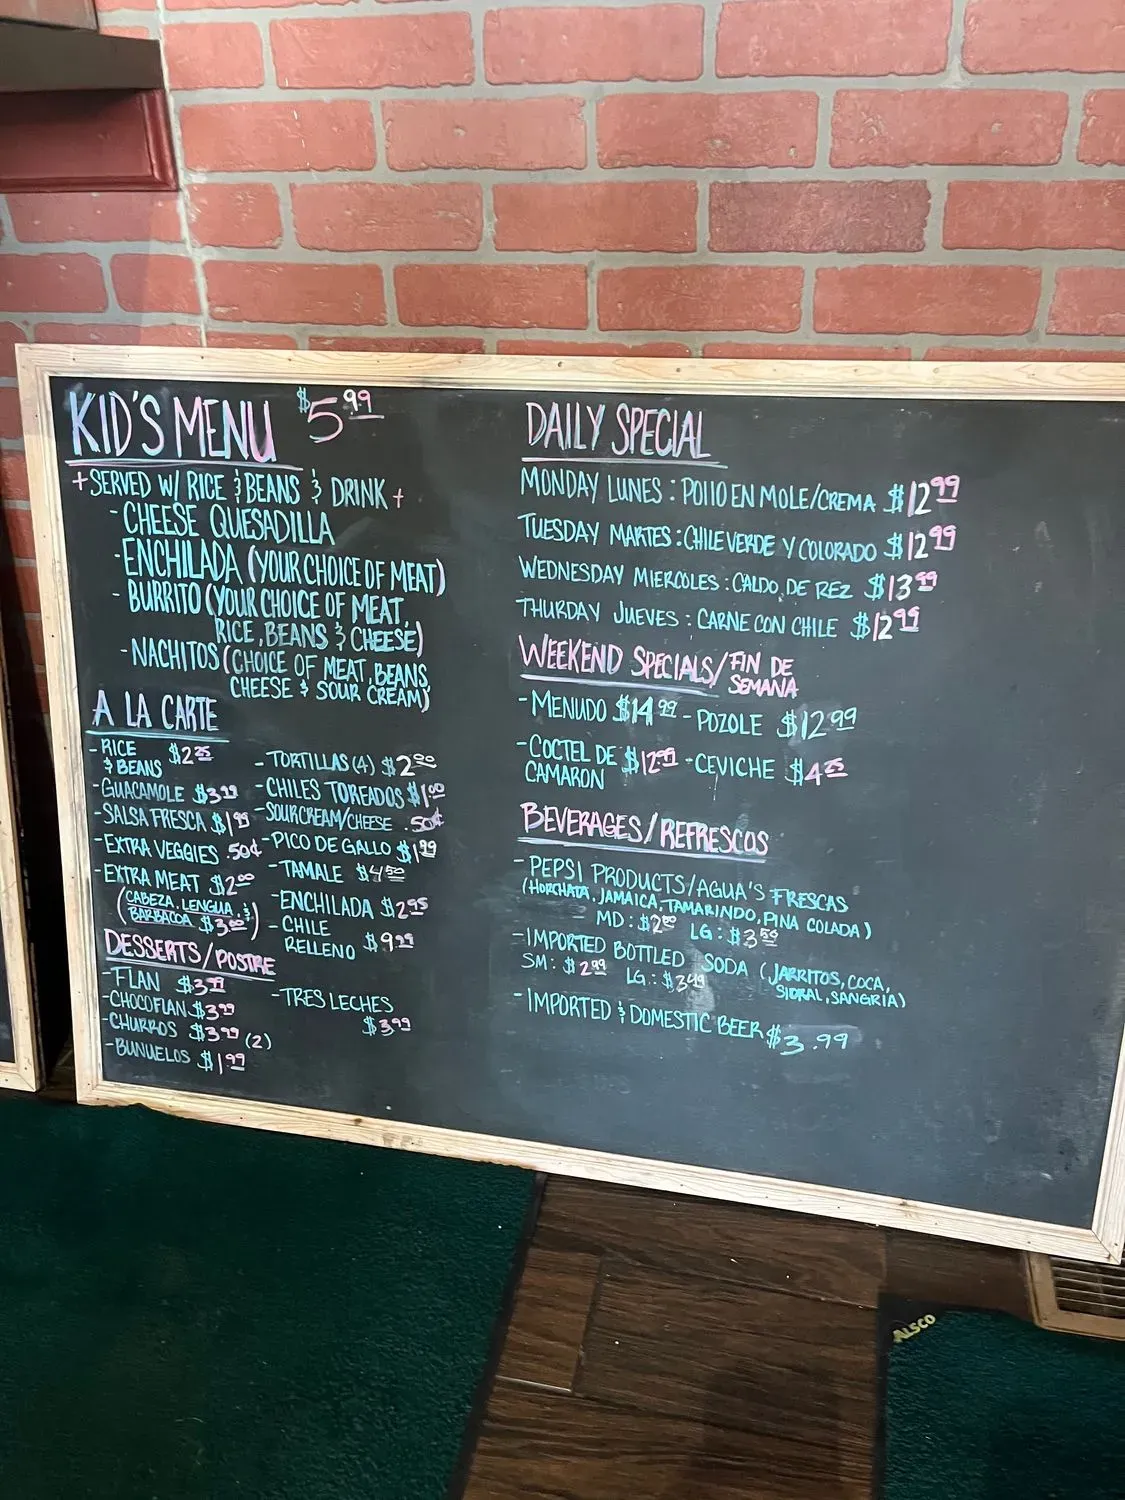 KID'S MENU $5.99
+ SERVED W/ RICE & BEANS & DRINK +
- CHEESE QUESADILLA
- ENCHILADA (YOUR CHOICE OF MEAT)
- BURRITO (YOUR CHOICE OF MEAT,
RICE, BEANS & CHEESE)
- NACHITOS (CHOICE OF MEAT, BEANS,
CHEESE & SOUR CREAM)
A LA CARTE
- RICE
& BEANS $2.25
- GUACAMOLE $3.99
- SALSA FRESCA $1.99
- EXTRA VEGGIES .50¢
- EXTRA MEAT $2.00
(CABEZA, LENGUA, &
BARBACOA $3.00)
- TORTILLAS (4) $2.00
- CHILES TOREADOS $1.00
- SOUR CREAM/CHEESE .50¢
- PICO DE GALLO $1.99
- TAMALE $4.50
- ENCHILADA $2.95
- CHILE
RELLENO $9.99
DESSERTS/POSTRE
- FLAN $3.99
- CHOCOFLAN $3.99
- CHURROS $3.99 (2)
- BUNUELOS $1.99
- TRES LECHES
$3.99
DAILY SPECIAL
MONDAY LUNES: POLLO EN MOLE/CREMA $12.99
TUESDAY MARTES: CHILE VERDE Y COLORADO $12.99
WEDNESDAY MIERCOLES: CALDO DE REZ $13.99
THURDAY JUEVES: CARNE CON CHILE $12.99
WEEKEND SPECIALS/FIN DE
SEMANA
- MENUDO $14.99 - POZOLE $12.99
- COCTEL DE
CAMARON $12.99 - CEVICHE $4.25
BEVERAGES/REFRESCOS
- PEPSI PRODUCTS/AGUA'S FRESCAS
(HORCHATA, JAMAICA, TAMARINDO, PINA COLADA)
MD: $2.50 LG: $3.50
- IMPORTED BOTTLED SODA (JARRITOS, COCA,
SIDRAL, SANGRIA)
SM: $2.99 LG: $3.49
- IMPORTED & DOMESTIC BEER $3.99
ALSCO